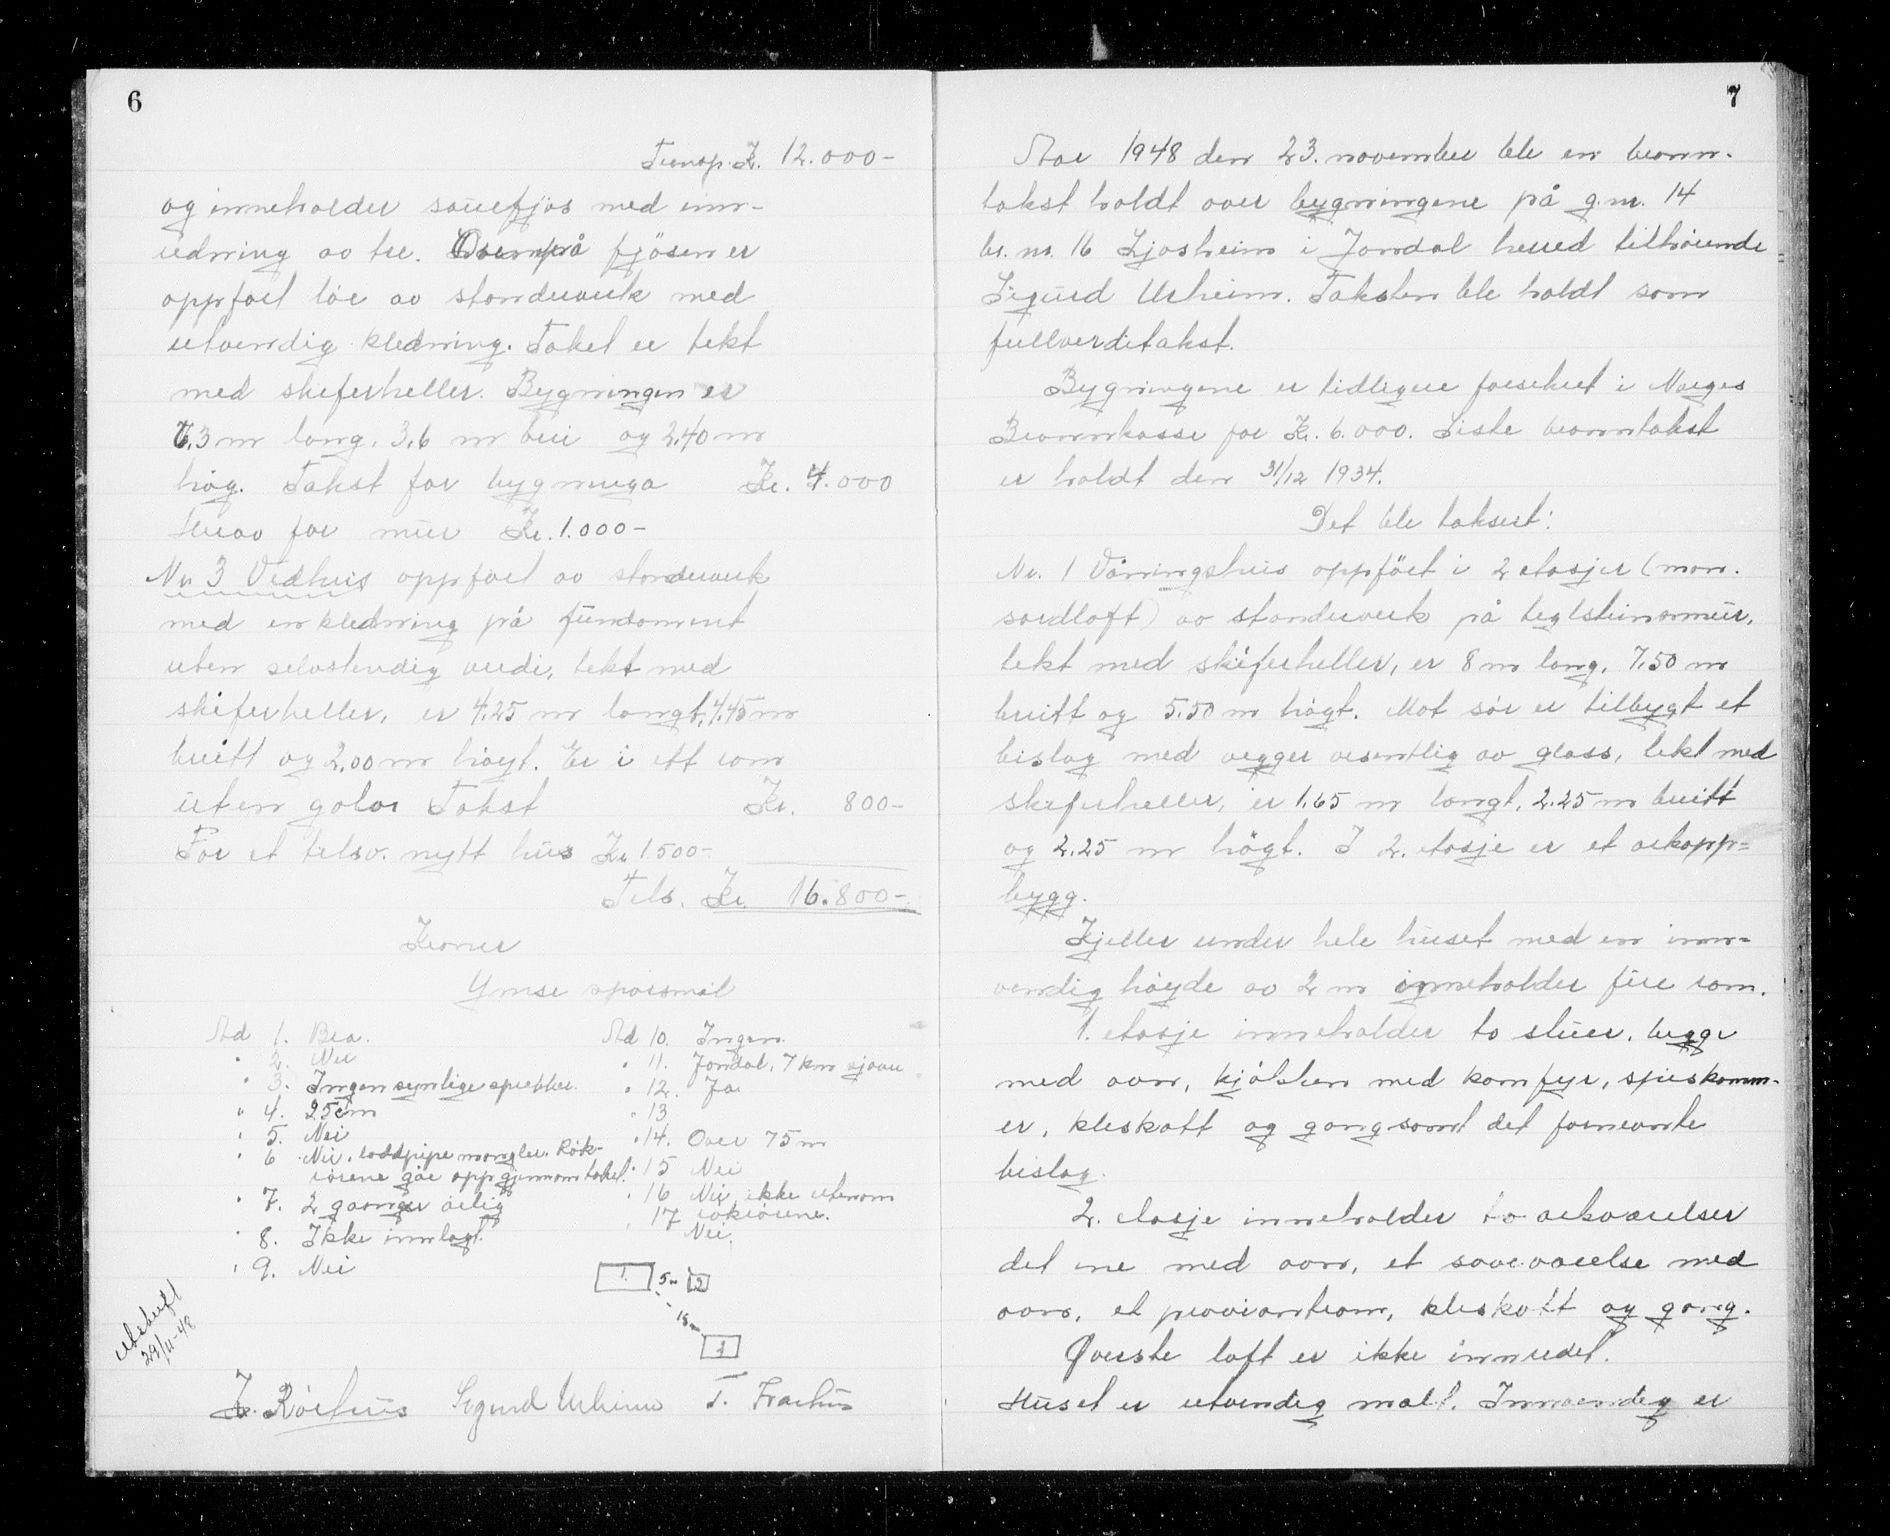 6
Transp. Kr. 12.000-
og inneholder sauefjøs med inn-
redning av tre. Ovenpå fjösen er
oppført løe av stenderverk med
utvendig kledning. Taket er tekt
med skiferheller. Bygningen er
6,3 m lang, 3,6 m brei og 2,40 m
høg. Takst for bygninga Kr. 4.000
Herav for mur Kr. 1.000-
Nr. 3 Vedhus oppført av stenderverk
med enkledning på fundament
uten selvstendig verdi, tekt med
skiferheller, er 4,25 m langt, 4,45 m
breitt og 2,00 m høgt. Er i ett rom
uten golv. Takst Kr. 800-
For et tilsv. nytt hus Kr. 1500-
Tils. Kr. 16.800-
Kroner
Ymse spørsmål
Ad 1. Bra.
" 2. Nei
" 3. Ingen synlige sprekker.
" 4. 25 cm
" 5. Nei
" 6 Nei, loddpipe mangler. Røk-
rørene går opp gjennom taket.
" 7. 2 ganger årlig
" 8. Ikke innlagt.
" 9. Nei
Ad 10. Ingen.
" 11. Jondal, 7 km sjøvei
" 12. Ja
" 13
" 14. Over 75 m
" 15 Nei
" 16 Nei, ikke utenom
røkrørene.
" 17 Nei.
1. 5 m 2
15 m
3
Utskrift
29/11-48
Sigurd Urheim
7
Aar 1948 den 23. november ble en brann-
takst holdt over bygningene på g.nr. 14
br. nr. 16 Ljosheim i Jondal herred tilhørende
Sigurd Urheim. Taksten ble holdt som
fullverditakst.
Bygningene er tidligere forsikret i Norges
Brannkasse for Kr. 6.000. Siste branntakst
er holdt den 31/12 1934.
Det ble taksert:
Nr. 1 Våningshus oppfört i 2 etasjer (man-
sardloft) av stenderverk på teglsteinsmur,
tekt med skiferheller, er 8 m lang, 7,50 m
breitt og 5,50 m høgt. Mot sør er tilbygt et
bislag med vegger vesentlig av glass, tekt med
skiferheller, er 1,65 m langt, 2.25 m breitt
og 2.25 m högt. I 2. etasje er et arkopp-
bygg.
Kjeller under hele huset med en inn-
vendig høyde av 2 m inneholder fire rom.
1. etasje inneholder to stuer, begge
med ovn, kjøkken med komfyr, spiskamm-
er, kleskott og gang samt det fornevnte
bislag.
2. etasje inneholder to arkværelser
det ene med ovn, et soveværelse med
ovn, et proviantrom, kleskott og gang.
Øverste loft er ikke innredet.
Huset er utvendig malt. Innvendig er